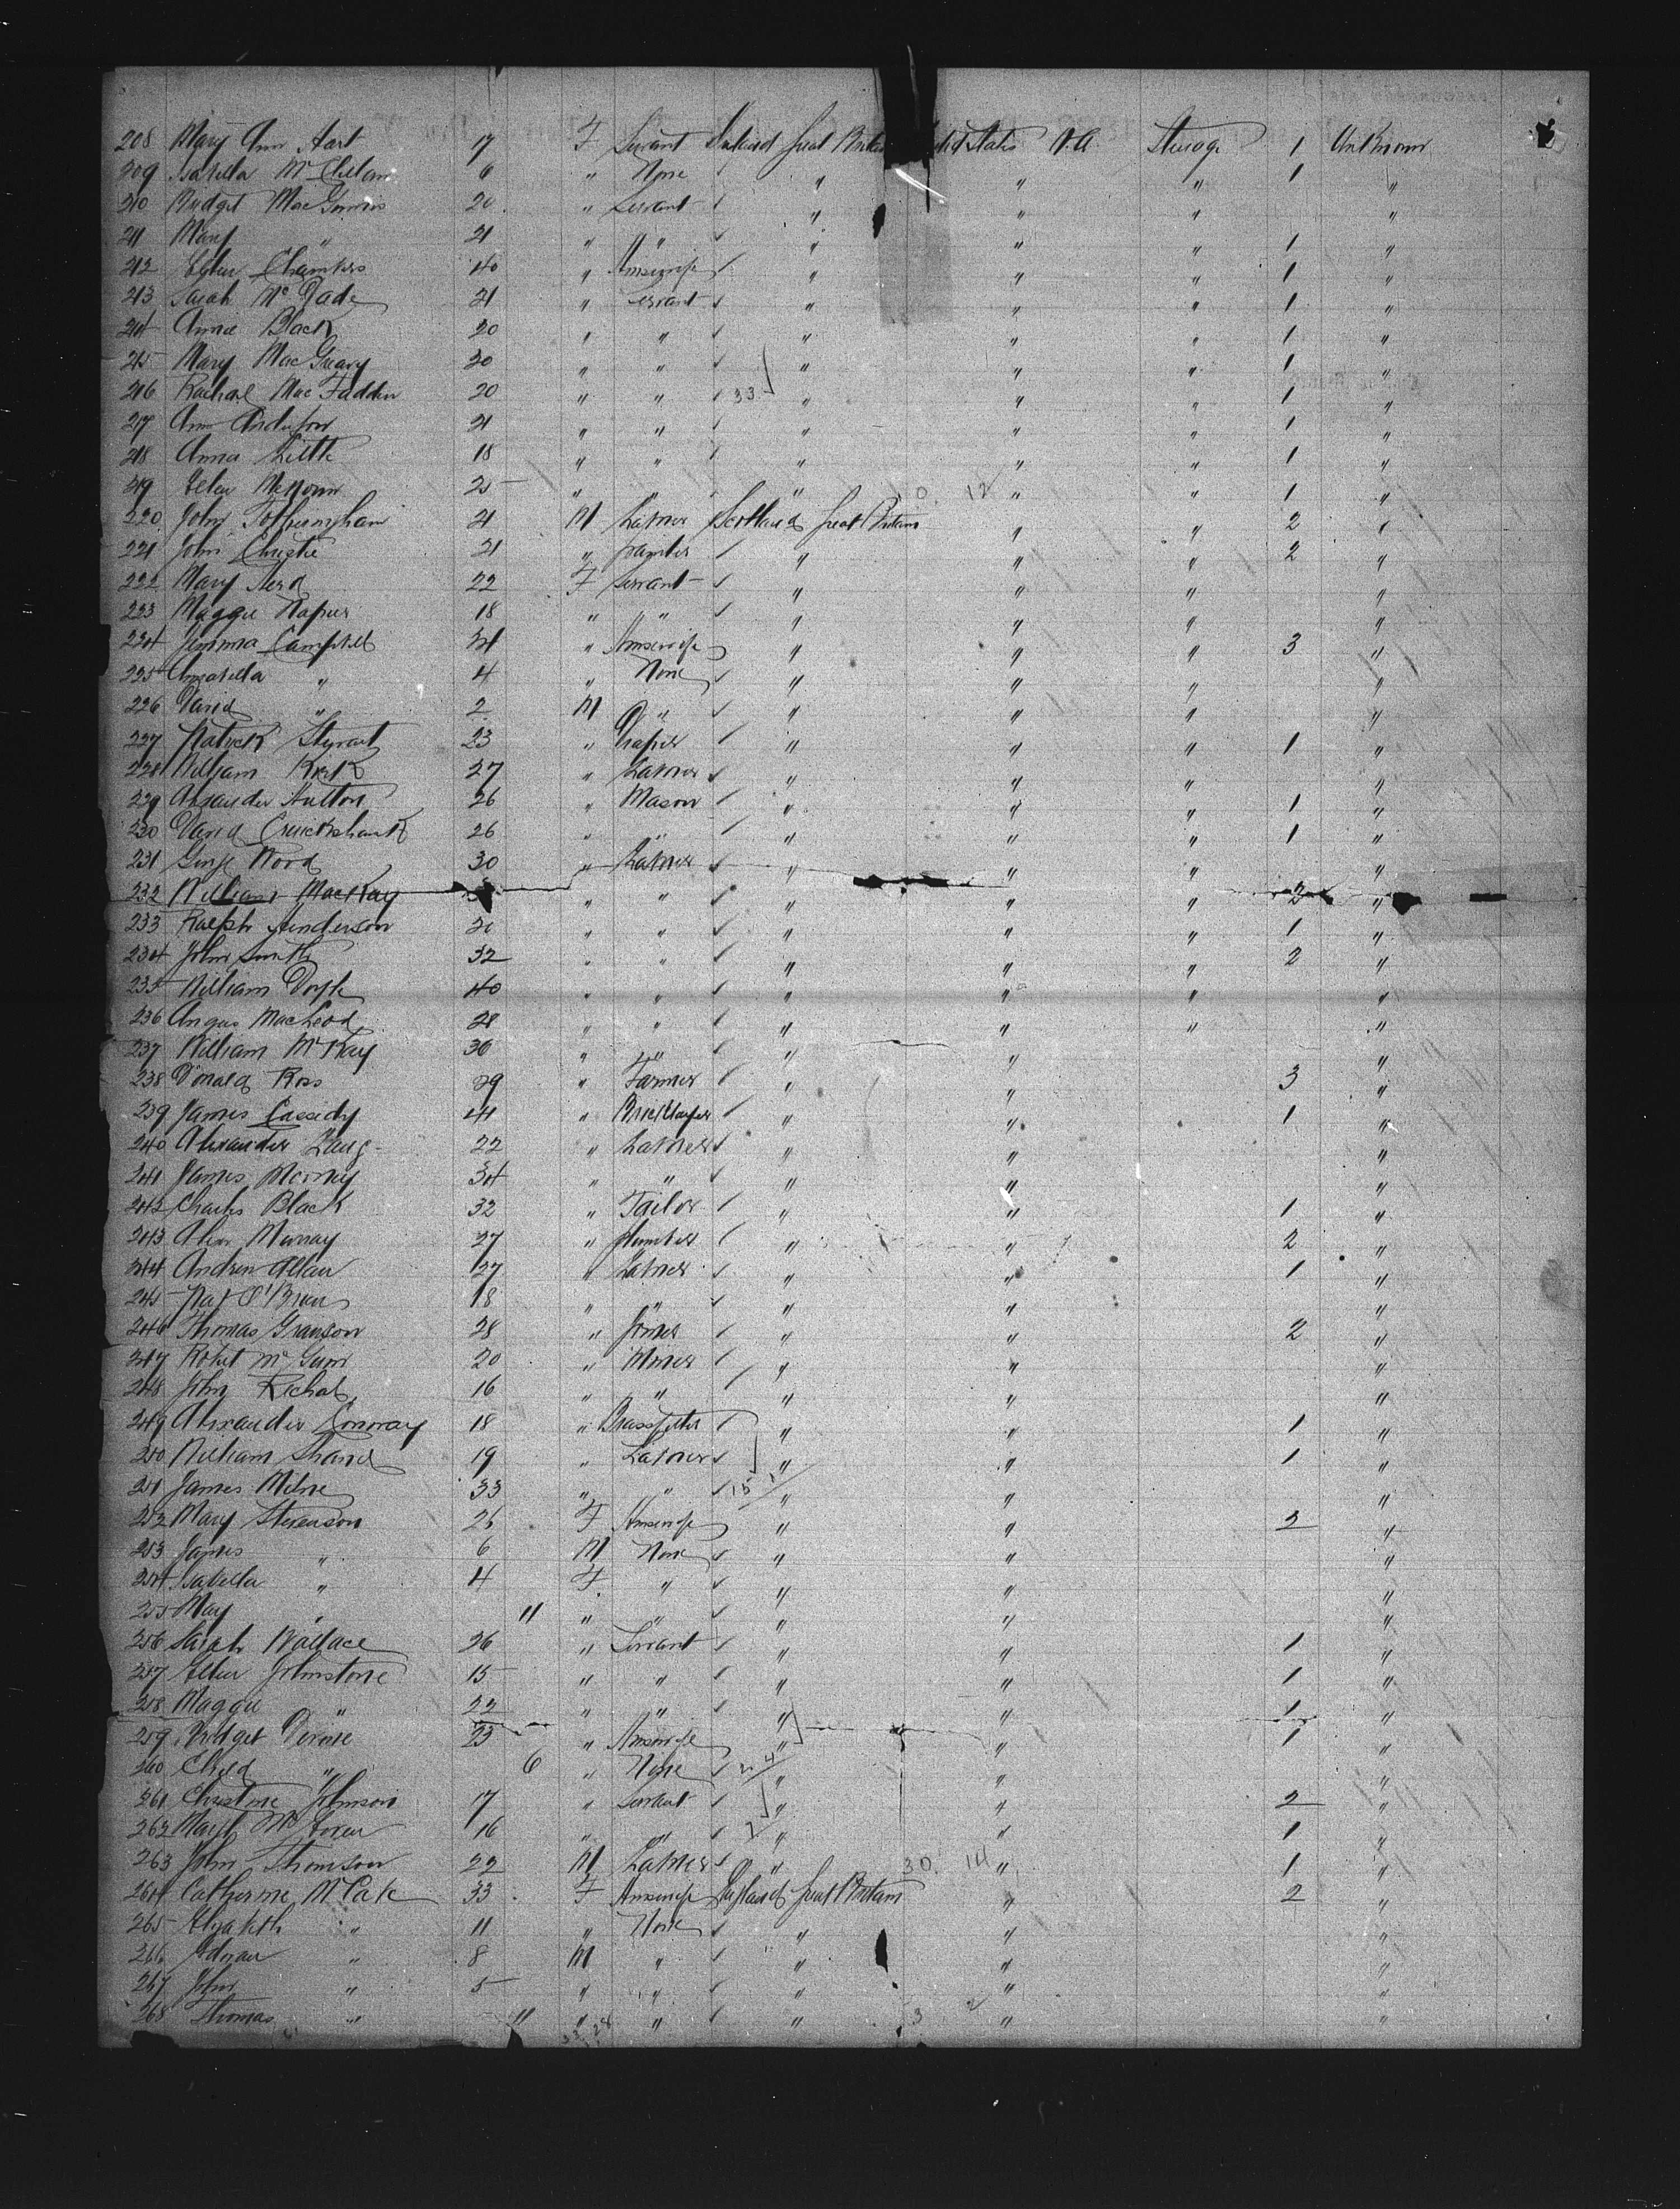 208 Mary Ann Hart 17 F Servant Ireland Great Britain United States N.A. Steerage 1 Unknown
209 Isabella McClellan 6 " None ✓ " " " 1 "
210 Bridget MacGinnis 20 " Servant ✓ " " " "
211 Mary " 21 " " ✓ " " " 1 "
212 Ellen Chambers 40 " Housewife ✓ " " " 1 "
213 Sarah McDade 21 " Servant ✓ " " " 1 "
214 Annie Black 20 " " ✓ " " " 1 "
215 Mary MacGreavy 20 " " ✓ " " " 1 "
216 Rachael MacFadden 20 " " ✓ 33 " " " 1 "
217 Ann Anderson 21 " " ✓ " " " 1 "
218 Anna Little 18 " " ✓ " " " 1 "
219 Ellen 25 " " " 12 " " 1 "
220 John Fotheringham 21 M Laborer Scotland Great Britain " " 2 "
221 John Christie 21 " painter ✓ " " " 2 "
222 Mary 22 F Servant ✓ " " " "
223 Maggie Napier 18 " " ✓ " " " "
224 Jemima Campbell 34 " Housewife " " " 3 "
225 " 4 " None ✓ " " " "
226 David " 2 M " ✓ " " " "
227 Patrick Stewart 23 " Draper ✓ " " " 1 "
228 William Kirk 27 " Laborer ✓ " " " "
229 Alexander Hutton 26 " Mason ✓ " " " 1 "
230 David Cruickshank 26 " " ✓ " " " 1 "
231 George Wood 30 " Laborer ✓ " " " "
232 William MacKay " " ✓ " " " 2 "
233 Ralph Henderson " " ✓ " " " 1 "
234 John Smith 32 " " ✓ " " " 2 "
235 William Doyle 40 " " ✓ " " " "
236 Angus MacLeod 28 " " ✓ " " " "
237 William McKay 36 " " ✓ " " "
238 Donald Ross 29 " Farmer ✓ " " 3 "
239 James Cassidy 44 " Bricklayer ✓ " " 1 "
240 Alexander Laing 22 " Laborer ✓ " " "
241 James 34 " " ✓ " " "
242 Charles Black 32 " Tailor ✓ " " 1 "
243 Murray 27 " plumber ✓ " " 2 "
244 Andrew Allan 27 " Laborer ✓ " " 1 "
245 Pat O'Brien 18 " " ✓ " " "
246 Thomas 28 " Joiner ✓ " " 2 "
247 Robert 20 " Miner ✓ " " "
248 John 16 " " ✓ " " "
249 Alexander Conway 18 " Brassfitter ✓ " " 1 "
250 William Shand 19 " Laborer ✓ " " 1 "
251 James Milne 33 " " ✓ 15 " " "
252 Mary Stevenson 26 F Housewife " " 2 "
253 James " 6 M None ✓ " " "
254 Isabella " 4 F " ✓ " " "
255 May " 11 " " ✓ " " "
256 Sarah Wallace 26 " Servant ✓ " " 1 "
257 Ellen Johnstone 15 " " ✓ " " 1 "
258 Maggie " 22 " " ✓ " " 1 "
259 Bridget Devine 23 " Housewife " " 1 "
260 Child " 6 " None ✓ " " "
261 Christine Johnson 17 " Servant ✓ " " 2 "
262 16 " " ✓ " " 1 "
263 John Thomson 22 M Laborer ✓ " 30 14 " 1 "
264 Catherine McCabe 33 F Housewife England Great Britain " 2 "
265 Elizabeth " 11 " None ✓ " " "
266 " 8 M " ✓ " " "
267 John " 5 " " ✓ " " "
268 Thomas " 11 " " ✓ " 3 2 " "